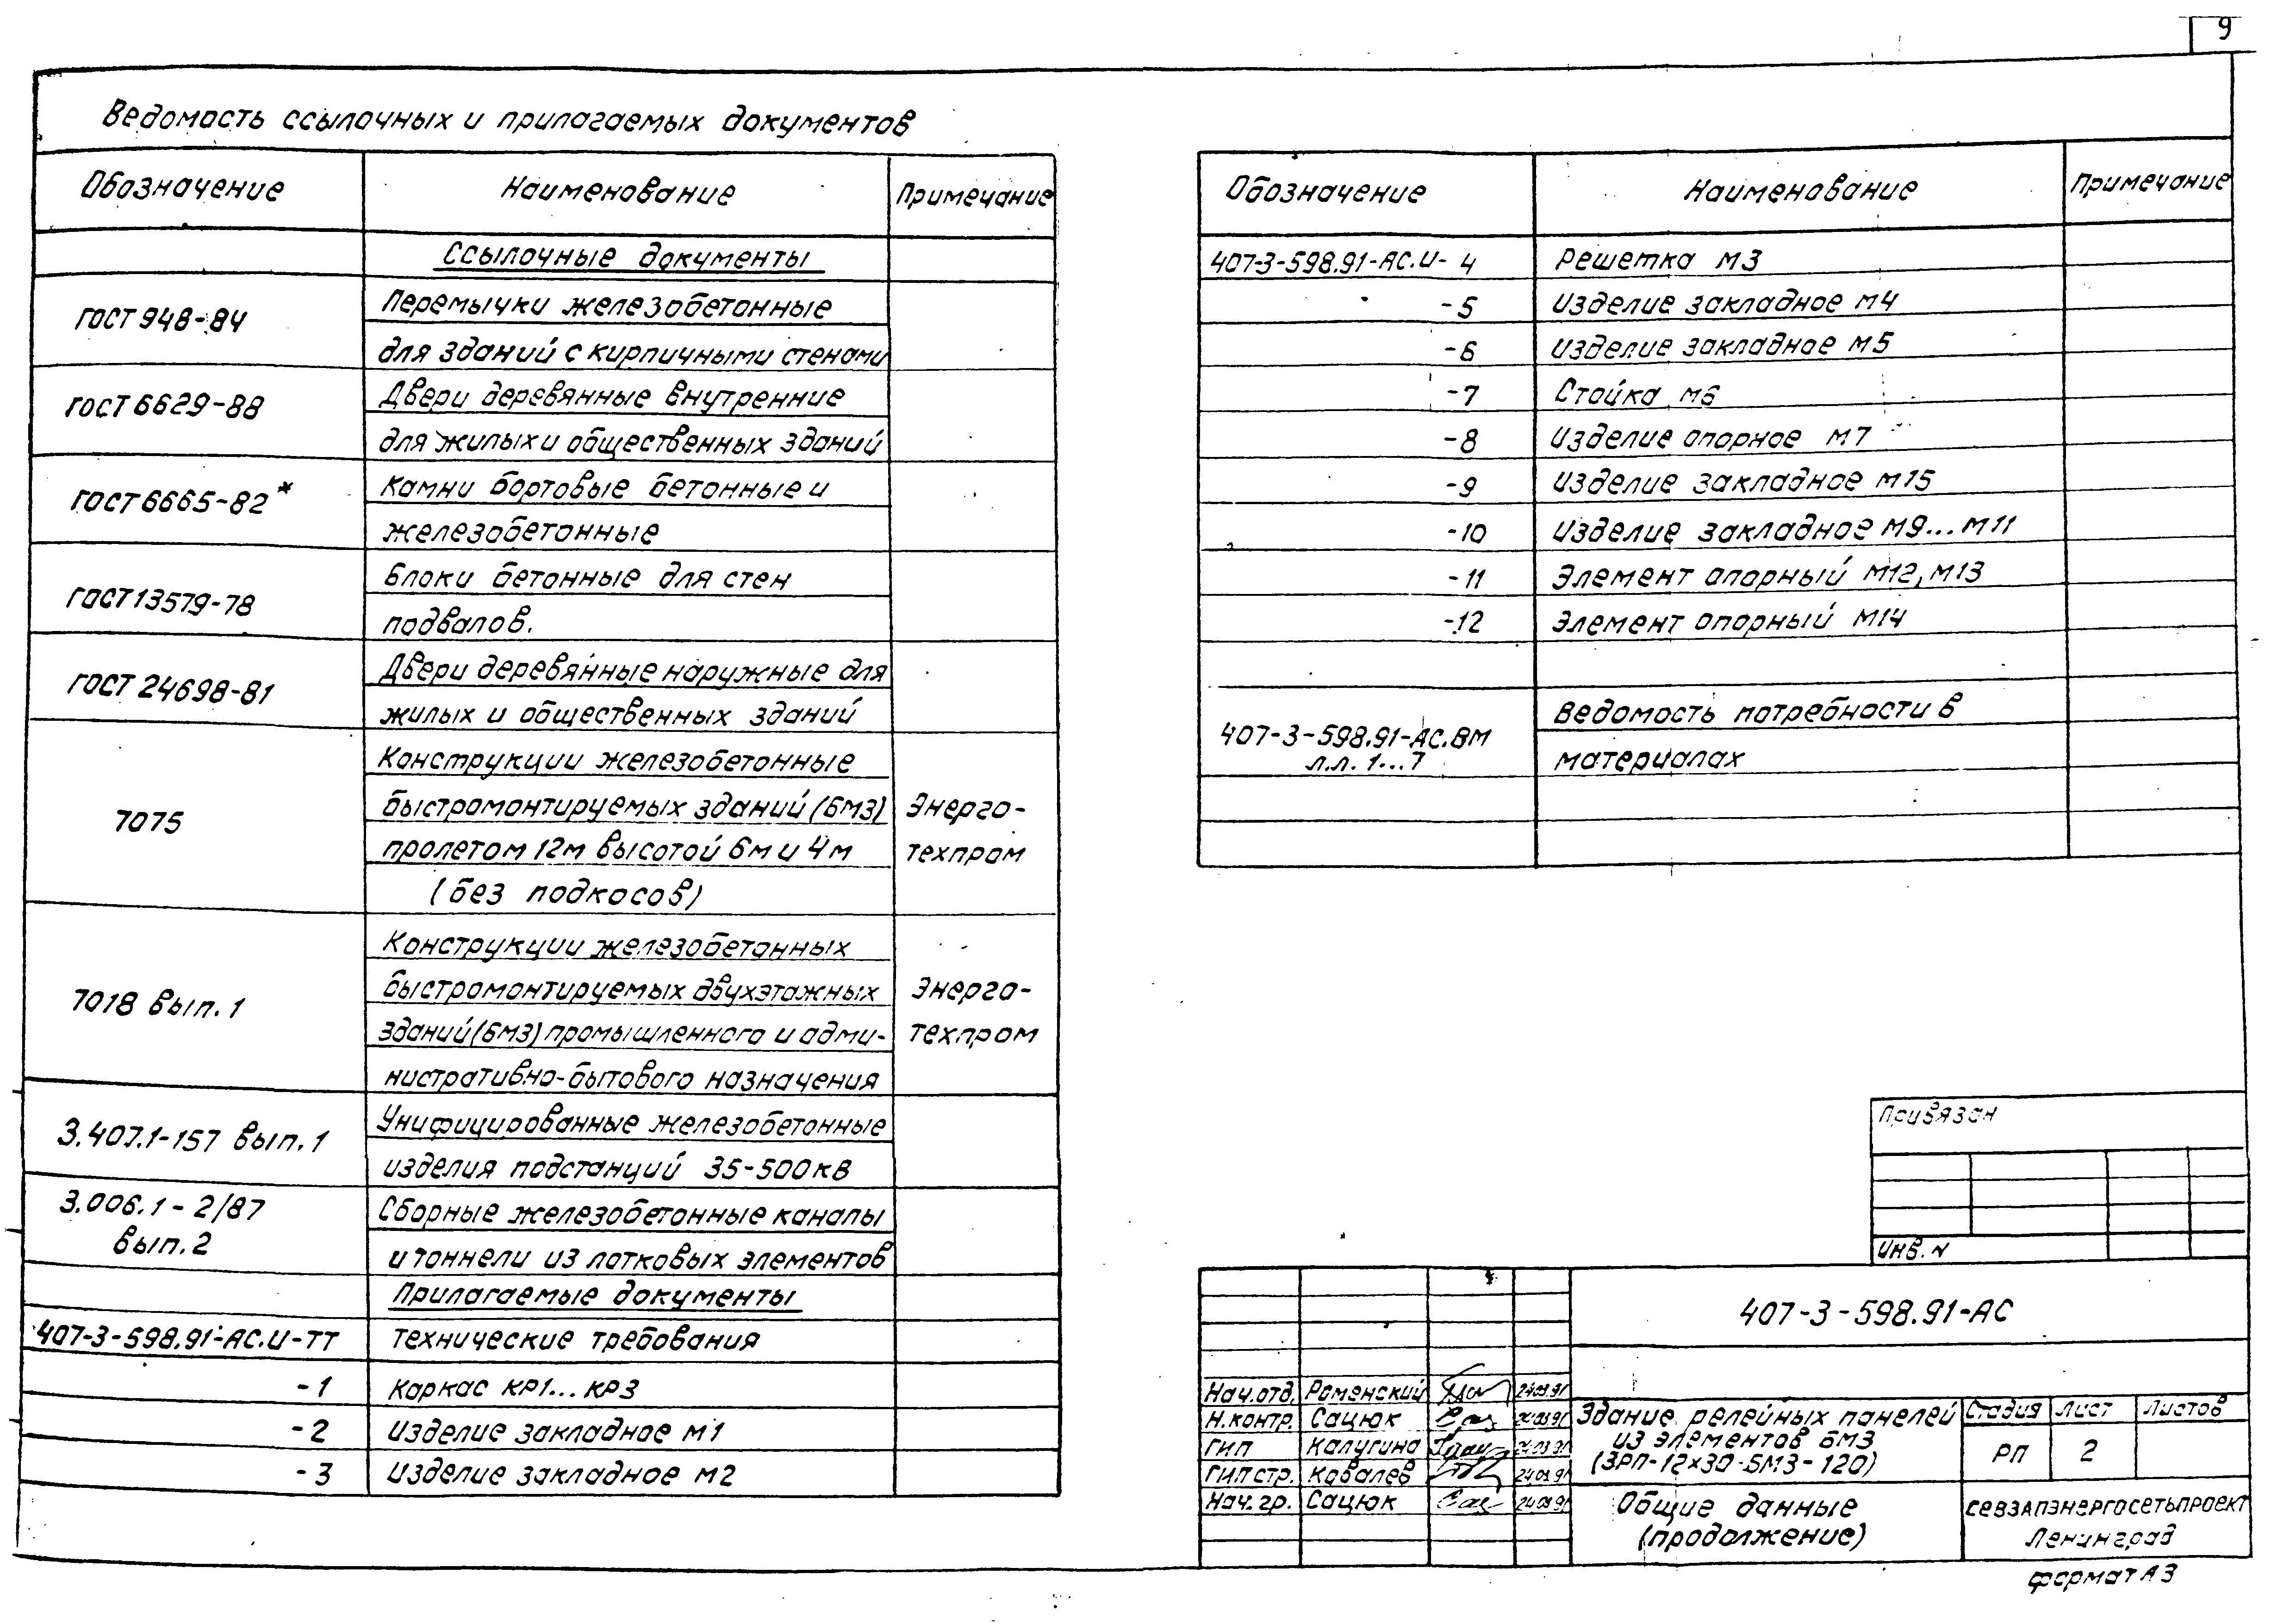 9
Ведомость ссылочных и прилагаемых документов
Обозначение Наименование Примечание
Ссылочные документы
ГОСТ 948-84 Перемычки железобетонные
для зданий с кирпичными стенами
ГОСТ 6629-88 Двери деревянные внутренние
для жилых и общественных зданий
ГОСТ 6665-82* Камни бортовые бетонные и
железобетонные
ГОСТ 13579-78 Блоки бетонные для стен
подвалов.
ГОСТ 24698-81 Двери деревянные наружные для
жилых и общественных зданий
7075 Конструкции железобетонные
быстромонтируемых зданий (БМЗ) Энерго-
пролетом 12м высотой 6м и 4м техпром
(без подкосов)
7018 вып. 1 Конструкции железобетонных
быстромонтируемых двухэтажных Энерго-
зданий (БМЗ) промышленного и адми- техпром
нистративно-бытового назначения
3.407.1-157 вып. 1 Унифицированные железобетонные
изделия подстанций 35-500кв
3.006.1-2/87 Сборные железобетонные каналы
вып. 2 и тоннели из лотковых элементов
Прилагаемые документы
407-3-598.91-АС.И-ТТ Технические требования
-1 Каркас КР1...КР3
-2 Изделие закладное М1
-3 Изделие закладное М2
Обозначение Наименование Примечание
407-3-598.91-АС.И-4 Решетка М3
-5 Изделие закладное М4
-6 Изделие закладное М5
-7 Стойка М6
-8 Изделие опорное М7
-9 Изделие закладное М15
-10 Изделие закладное М9...М11
-11 Элемент опорный М12, М13
-12 Элемент опорный М14
407-3-598.91-АС.ВМ Ведомость потребности в
л.л. 1...7 материалах
Привязан
Инв. N
407-3-598.91-АС
Нач.отд. Роменский 24.09.91
Н.контр. Сацюк 24.09.91
ГИП Калугина 24.09.91
ГИП стр. Ковалев 24.09.91
Нач.гр. Сацюк 24.09.91
Здание релейных панелей
из элементов БМЗ
(ЗРП-12х30-БМЗ-120)
Стадия Лист Листов
РП 2
Общие данные
(продолжение)
СЕВЗАПЭНЕРГОСЕТЬПРОЕКТ
Ленинград
формат А3